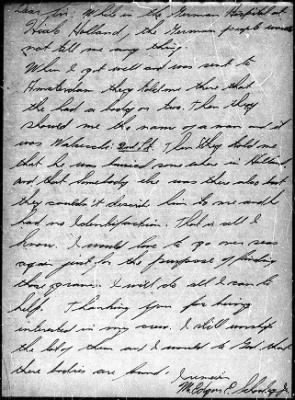 Dear Sir. While in the German Hospital at
Holland, the German people would
not tell me any thing.
When I got well and was sent to
Amsterdam they told me there that
the had a body or two. Then they
should me the name of a man and it
was 2nd Lt. Then they told me
that he was buried some where in Holland
and that somebody else was there also but
they couldn't describ him to me and he
had no Identification. That is all I
know. I would love to go over seas
again just for the purpose of finding
those graves. I will do all I can to
help. Thanking you for being
interested in my crew. I still worship
the lot of them and I would to God that
there bodies are found.
I remain